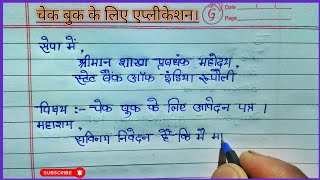 चेक बुक के लिए एप्लीकेशन।
सेवा में,
श्रीमान शाखा प्रबंधक महोदय,
स्टेट बैंक ऑफ इंडिया रूपौली
विषय :- चेक बुक के लिए आवेदन पत्र।
महाशय,
सविनय निवेदन है कि मै मा
SUBSCRIBE
SUBSCRIBE